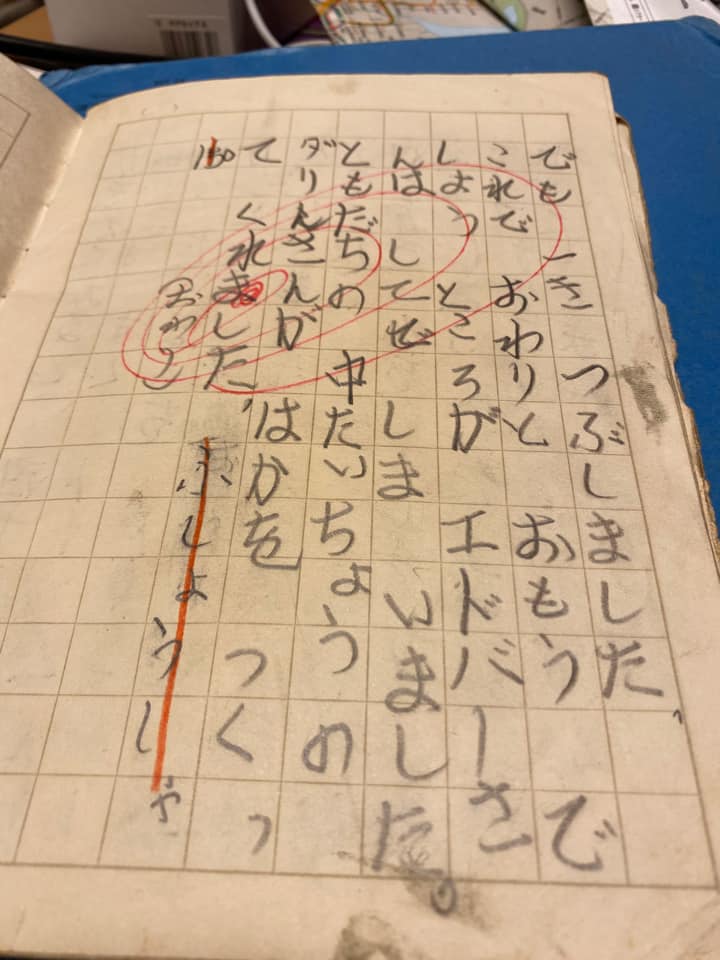 でも一き つぶしました、
これで おわりと おもうで
しょう ところが エドバーさ
んは してぜ しま いました。
ともだちの 中たいちょうの
ダりんさんが はかを つくっ
て くれました、
150
おわり
ふしょうしゃ